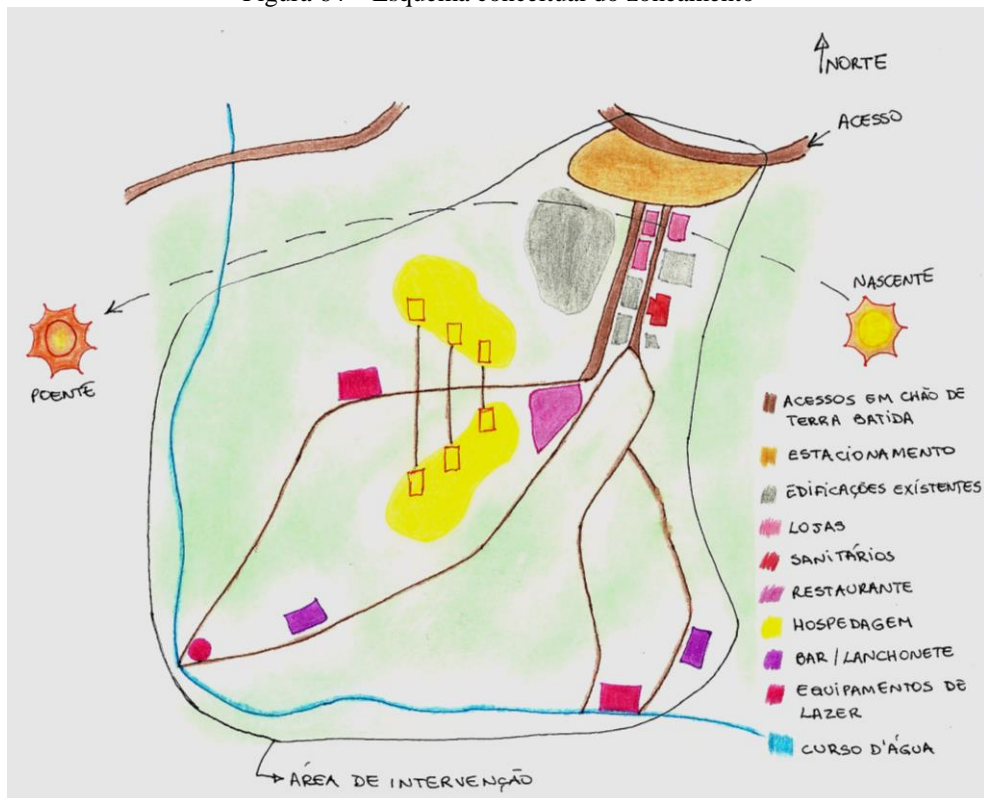 NORTE
ACESSO
NASCENTE
POENTE
ACESSOS EM CHÃO DE
TERRA BATIDA
ESTACIONAMENTO
EDIFICAÇÕES EXISTENTES
LOJAS
SANITÁRIOS
RESTAURANTE
HOSPEDAGEM
BAR/LANCHONETE
EQUIPAMENTOS DE
LAZER
CURSO D'ÁGUA
ÁREA DE INTERVENÇÃO